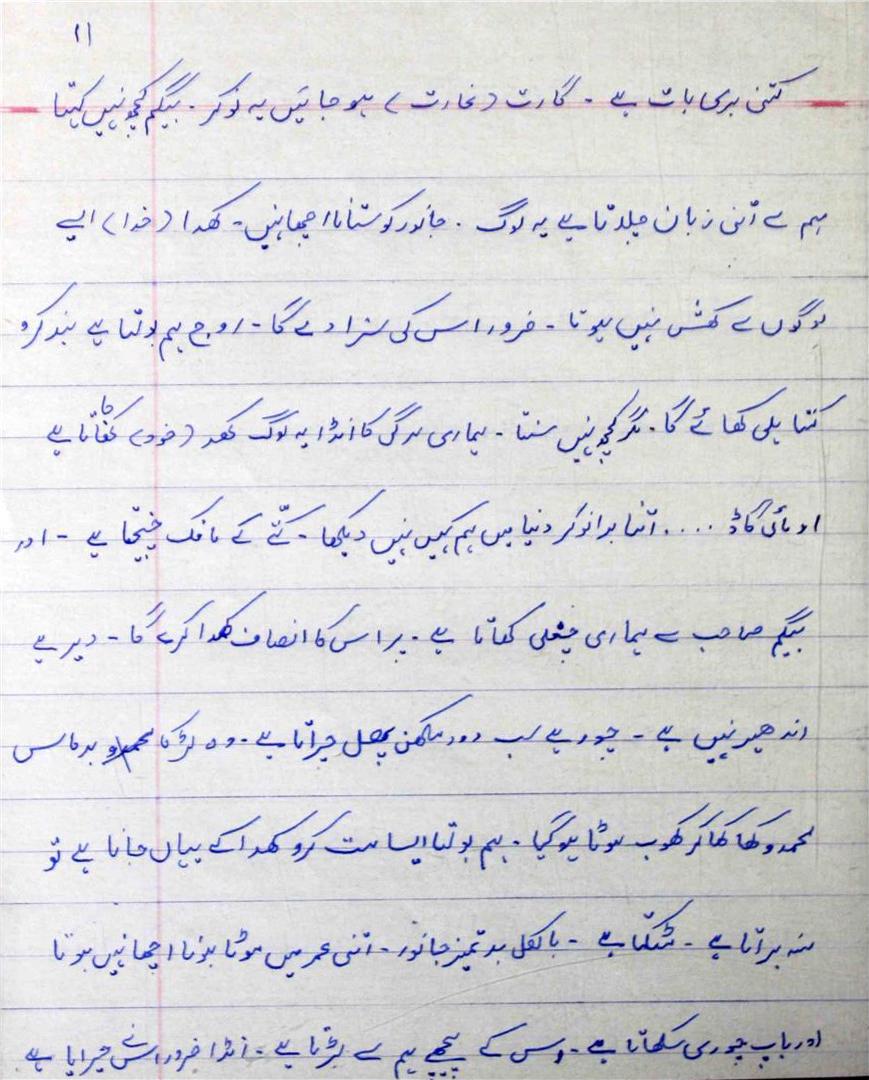 ۱۱
کتنی بری بات ہے ۔ گارت (غارت) ہو جائیں یہ نوکر ۔ بیگم کچھ نہیں کہتا
ہم سے اتنی زبان چلاتا ہے یہ لوگ ۔ جانور کو ستانا اچھا نہیں ۔ کھدا (خدا) ایسے
لوگوں سے کھش نہیں ہوتا ۔ ضرور اس کی سزا دے گا ۔ روج ہم بولتا ہے بند کرو
کتنا بلی کھائے گا ۔ مگر کچھ نہیں سنتا ۔ ہماری مرگی کا انڈا یہ لوگ کھد (خود) کھا جاتا ہے
او مائی گاڈ .... اتنا برا نوکر دنیا میں ہم کہیں نہیں دیکھا ۔ کتّے کے مافک چیختا ہے ۔ اور
بیگم صاحب سے ہماری چغلی کھاتا ہے ۔ پر اس کا انصاف کھدا کرے گا ۔ دیر ہے
اندھیر نہیں ہے ۔ چور ہے سب دودھ مکھن پھل چراتا ہے ۔ وہ لڑکا بدماس
محمدو کھا کھا کر کھوب موٹا ہو گیا ۔ ہم بولتا ایسا مت کرو کھدا کے یہاں جانا ہے تو
منہ براتا ہے ۔ مٹکتا ہے ۔ بالکل بدتمیز جانور ۔ اتنی عمر میں موٹا ہونا اچھا نہیں ہوتا
اور باپ چوری سکھاتا ہے ۔ اس کے پیچھے ہم سے لڑتا ہے ۔ انڈا ضرور اس نے چرایا ہے